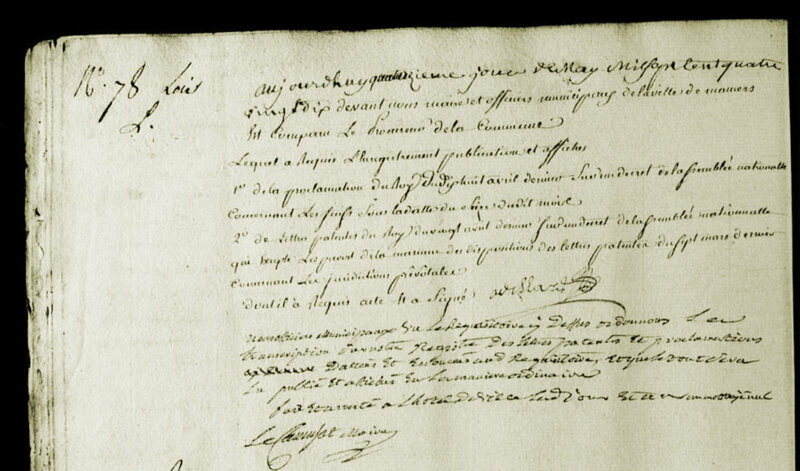 No. 78 Lois
L.
aujourdhuy quatorzieme jour de May Mil Sept Cent quatre
vingt dix devant nous maire et officiers municipaux de la ville de mamers
Est comparu Le procureur de la Commune
Lequel a requis L'enregistrement publication et affiches
1° de la proclamation du Roy du dixhuit avril dernier Sur un decret de la assemblée nationalle
Concernant Les sous la datte du dudit mois
2° de Lettres patentes du Roy du vingt avril dernier Sur un decret de la assemblée nationnalle
qui Excepte Les prevot de la marinne des dispositions des lettres patentes du Sept mars dernier
Concernant Les juridictions prévôtales
dont il a Requis acte Et a Signé
nous officiers Municipaux Vu Le Requisitoire cy Dessus ordonnons La
transcription Sur notre Registre Des Lettres patentes et proclamations
Dattées Et Enoncées aud Requisitoire, et que Le tout Sera
Lu publié Et affiché En La maniere ordinaire
fait Et arrété a L'hotel De Ville Led jour Et
Le Maire